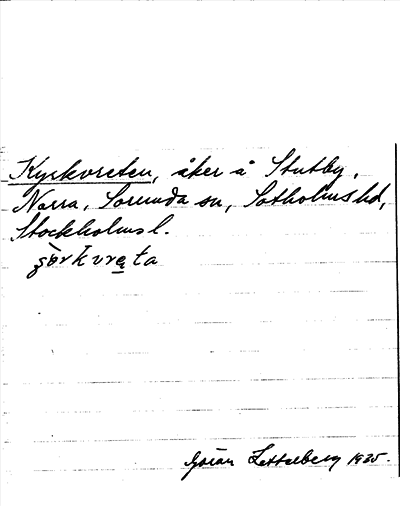 Kyrkvreten, åker å Stutby,
Norra, Sorunda sn, Sotholms hd,
Stockholms l.
Göran Zetterberg 1935.